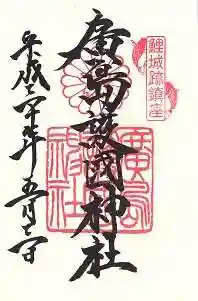 鯉城跡鎮座
廣島護國神社
廣島護國神社
平成二十年五月日